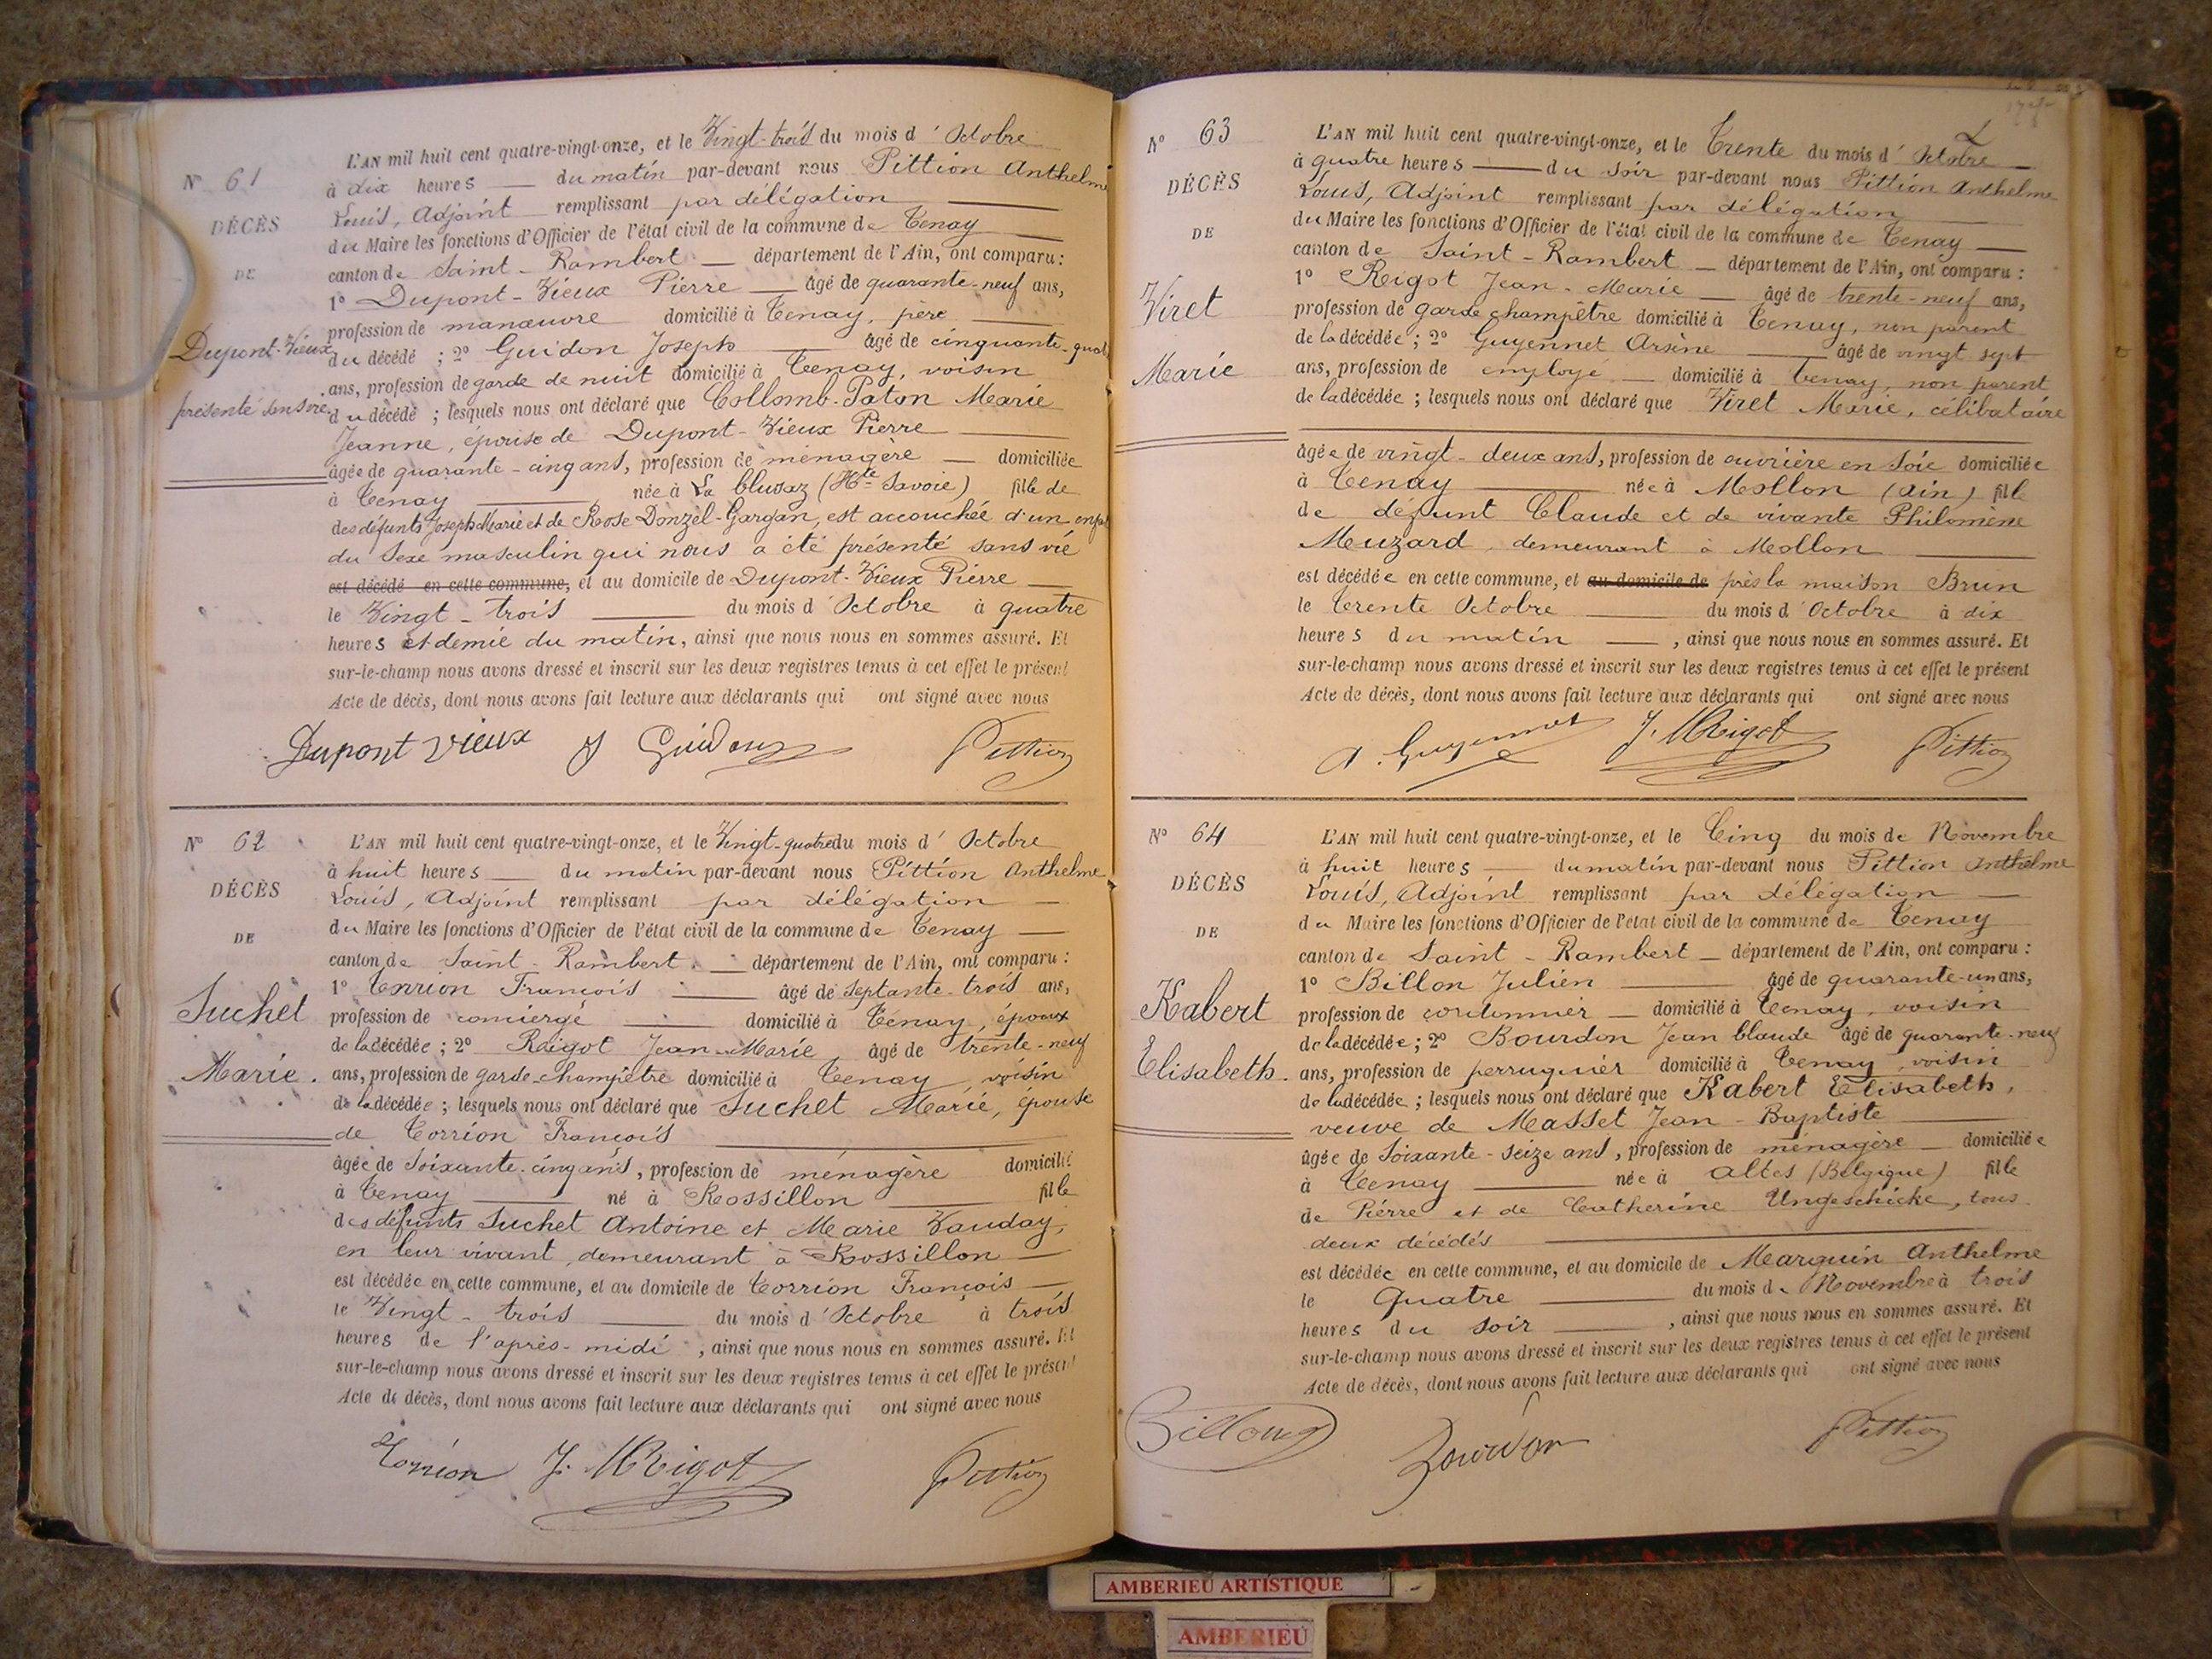 N° 61
DÉCÈS
DE
Dupont-Vieux
présenté sans vie
L'AN mil huit cent quatre-vingt-onze, et le Vingt-trois du mois d'Octobre
à dix heures du matin par-devant nous Pittion Anthelme
Louis, Adjoint remplissant par délégation
du Maire les fonctions d'Officier de l'état civil de la commune de Tenay
canton de Saint-Rambert département de l'Ain, ont comparu :
1° Dupont-Vieux Pierre âgé de quarante-neuf ans,
profession de manœuvre domicilié à Tenay, père
du décédé ; 2° Guidon Joseph âgé de cinquante-quatre
ans, profession de garde de nuit domicilié à Tenay, voisin
du décédé ; lesquels nous ont déclaré que Collomb-Paton Marie
Jeanne, épouse de Dupont-Vieux Pierre
âgée de quarante-cinq ans, profession de ménagère domiciliée
à Tenay née à La Clusaz (Hte Savoie) fille de
des défunts Joseph Marie et de Rose Donzel-Gargan, est accouchée d'un enfant
du sexe masculin qui nous a été présenté sans vie
est décédé en cette commune, et au domicile de Dupont-Vieux Pierre
le Vingt-trois du mois d'Octobre à quatre
heures et demie du matin, ainsi que nous nous en sommes assuré. Et
sur-le-champ nous avons dressé et inscrit sur les deux registres tenus à cet effet le présent
Acte de décès, dont nous avons fait lecture aux déclarants qui ont signé avec nous
Dupont Vieux J Guidon Pittion
N° 62
DÉCÈS
DE
Suchet
Marie.
L'AN mil huit cent quatre-vingt-onze, et le Vingt-quatre du mois d'Octobre
à huit heures du matin par-devant nous Pittion Anthelme
Louis, Adjoint remplissant par délégation
du Maire les fonctions d'Officier de l'état civil de la commune de Tenay
canton de Saint-Rambert département de l'Ain, ont comparu :
1° Torrion François âgé de septante-trois ans,
profession de concierge domicilié à Tenay, époux
de la décédée ; 2° Reigot Jean-Marie âgé de trente-neuf
ans, profession de garde-champêtre domicilié à Tenay, voisin
de la décédée ; lesquels nous ont déclaré que Suchet Marie, épouse
de Torrion François
âgée de soixante-cinq ans, profession de ménagère domicilié
à Tenay né à Rossillon fille
des défunts Suchet Antoine et Marie Vauday,
en leur vivant demeurant à Rossillon
est décédée en cette commune, et au domicile de Torrion François
le Vingt-trois du mois d'Octobre à trois
heures de l'après-midi, ainsi que nous nous en sommes assuré. Et
sur-le-champ nous avons dressé et inscrit sur les deux registres tenus à cet effet le présent
Acte de décès, dont nous avons fait lecture aux déclarants qui ont signé avec nous
Torrion J. M Rigot Pittion
N° 63
DÉCÈS
DE
Viret
Marie
L'AN mil huit cent quatre-vingt-onze, et le Trente du mois d'Octobre
à quatre heures du soir par-devant nous Pittion Anthelme
Louis, Adjoint remplissant par délégation
du Maire les fonctions d'Officier de l'état civil de la commune de Tenay
canton de Saint-Rambert département de l'Ain, ont comparu :
1° Reigot Jean-Marie âgé de trente-neuf ans,
profession de garde champêtre domicilié à Tenay, non parent
de la décédée ; 2° Guyennet Arsène âgé de vingt sept
ans, profession de employé domicilié à Tenay, non parent
de la décédée ; lesquels nous ont déclaré que Viret Marie, célibataire
âgée de vingt-deux ans, profession de ouvrière en soie domiciliée
à Tenay née à Mollon (Ain) fille
de défunt Claude et de vivante Philomène
Muzard, demeurant à Mollon
est décédée en cette commune, et au domicile de près la maison Brun
le Trente Octobre du mois d'Octobre à dix
heures du matin, ainsi que nous nous en sommes assuré. Et
sur-le-champ nous avons dressé et inscrit sur les deux registres tenus à cet effet le présent
Acte de décès, dont nous avons fait lecture aux déclarants qui ont signé avec nous
A. Guyennet J. M Rigot Pittion
N° 64
DÉCÈS
DE
Kabert
Elisabeth.
L'AN mil huit cent quatre-vingt-onze, et le Cinq du mois de Novembre
à huit heures du matin par-devant nous Pittion Anthelme
Louis, Adjoint remplissant par délégation
du Maire les fonctions d'Officier de l'état civil de la commune de Tenay
canton de Saint-Rambert département de l'Ain, ont comparu :
1° Billon Julien âgé de quarante-un ans,
profession de cordonnier domicilié à Tenay, voisin
de la décédée ; 2° Bourdon Jean Claude âgé de quarante-neuf
ans, profession de perruquier domicilié à Tenay, voisin
de la décédée ; lesquels nous ont déclaré que Kabert Elisabeth,
veuve de Masset Jean-Baptiste
âgée de soixante-seize ans, profession de ménagère domiciliée
à Tenay née à Altes (Belgique) fille
de Pierre et de Catherine Ungeschicke, tous
deux décédés
est décédée en cette commune, et au domicile de Marquin Anthelme
le Quatre du mois de Novembre à trois
heures du soir, ainsi que nous nous en sommes assuré. Et
sur-le-champ nous avons dressé et inscrit sur les deux registres tenus à cet effet le présent
Acte de décès, dont nous avons fait lecture aux déclarants qui ont signé avec nous
Billon Bourdon Pittion
AMBERIEU ARTISTIQUE
AMBERIEU